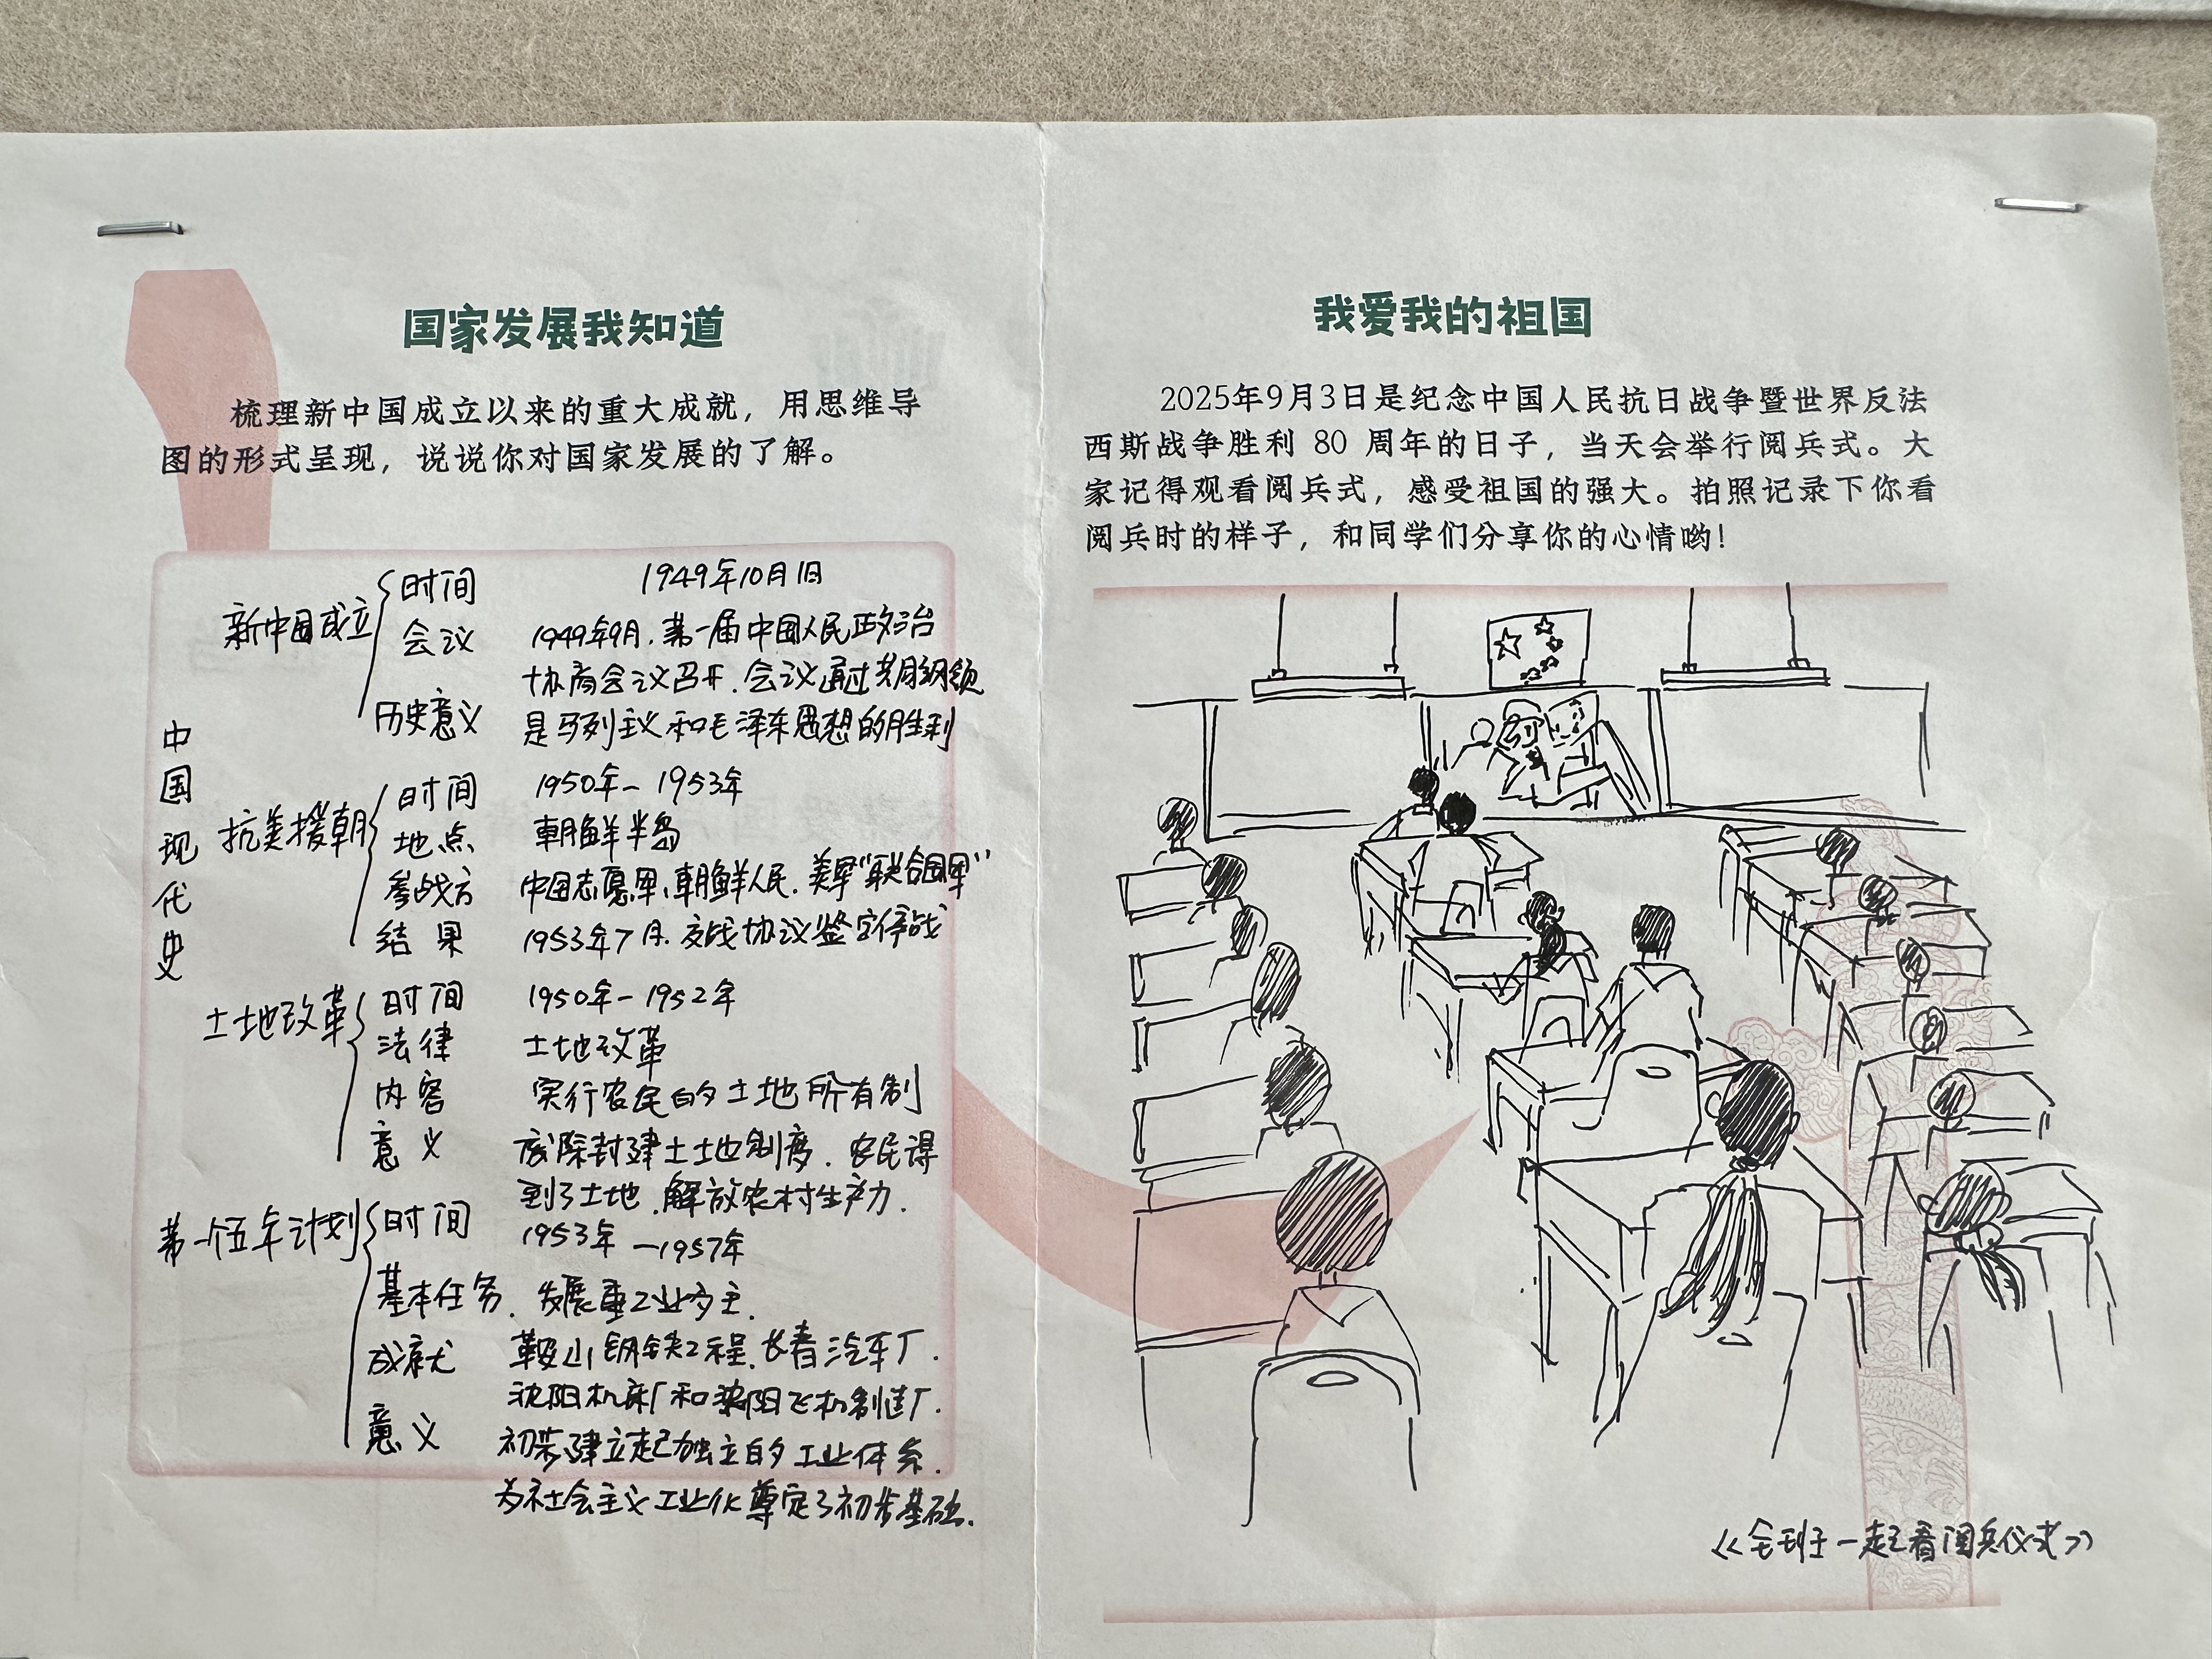 国家发展我知道
梳理新中国成立以来的重大成就，用思维导
图的形式呈现，说说你对国家发展的了解。
中国现代史
新中国成立
时间 1949年10月1日
会议 1949年9月.第一届中国人民政治
协商会议召开.会议通过共同纲领
历史意义 是马列主义和毛泽东思想的胜利
抗美援朝
时间 1950年-1953年
地点 朝鲜半岛
参战方 中国志愿军、朝鲜人民.美军“联合国军”
结果 1953年7月.交战协议签字停战
土地改革
时间 1950年-1952年
法律 土地改革
内容 实行农民的土地所有制
意义 废除封建土土地制度.农民得
到了土地.解放农村生产力.
第一个五年计划
时间 1953年—1957年
基本任务.发展重工业为主.
成就 鞍山钢铁工程.长春汽车厂.
沈阳机床厂和沈阳飞机制造厂.
意义 初步建立起独立的工业体系.
为社会主义工业化奠定了初步基础.
我爱我的祖国
2025年9月3日是纪念中国人民抗日战争暨世界反法
西斯战争胜利 80 周年的日子，当天会举行阅兵式。大
家记得观看阅兵式，感受祖国的强大。拍照记录下你看
阅兵时的样子，和同学们分享你的心情哟！
《全班一起看阅兵仪式》